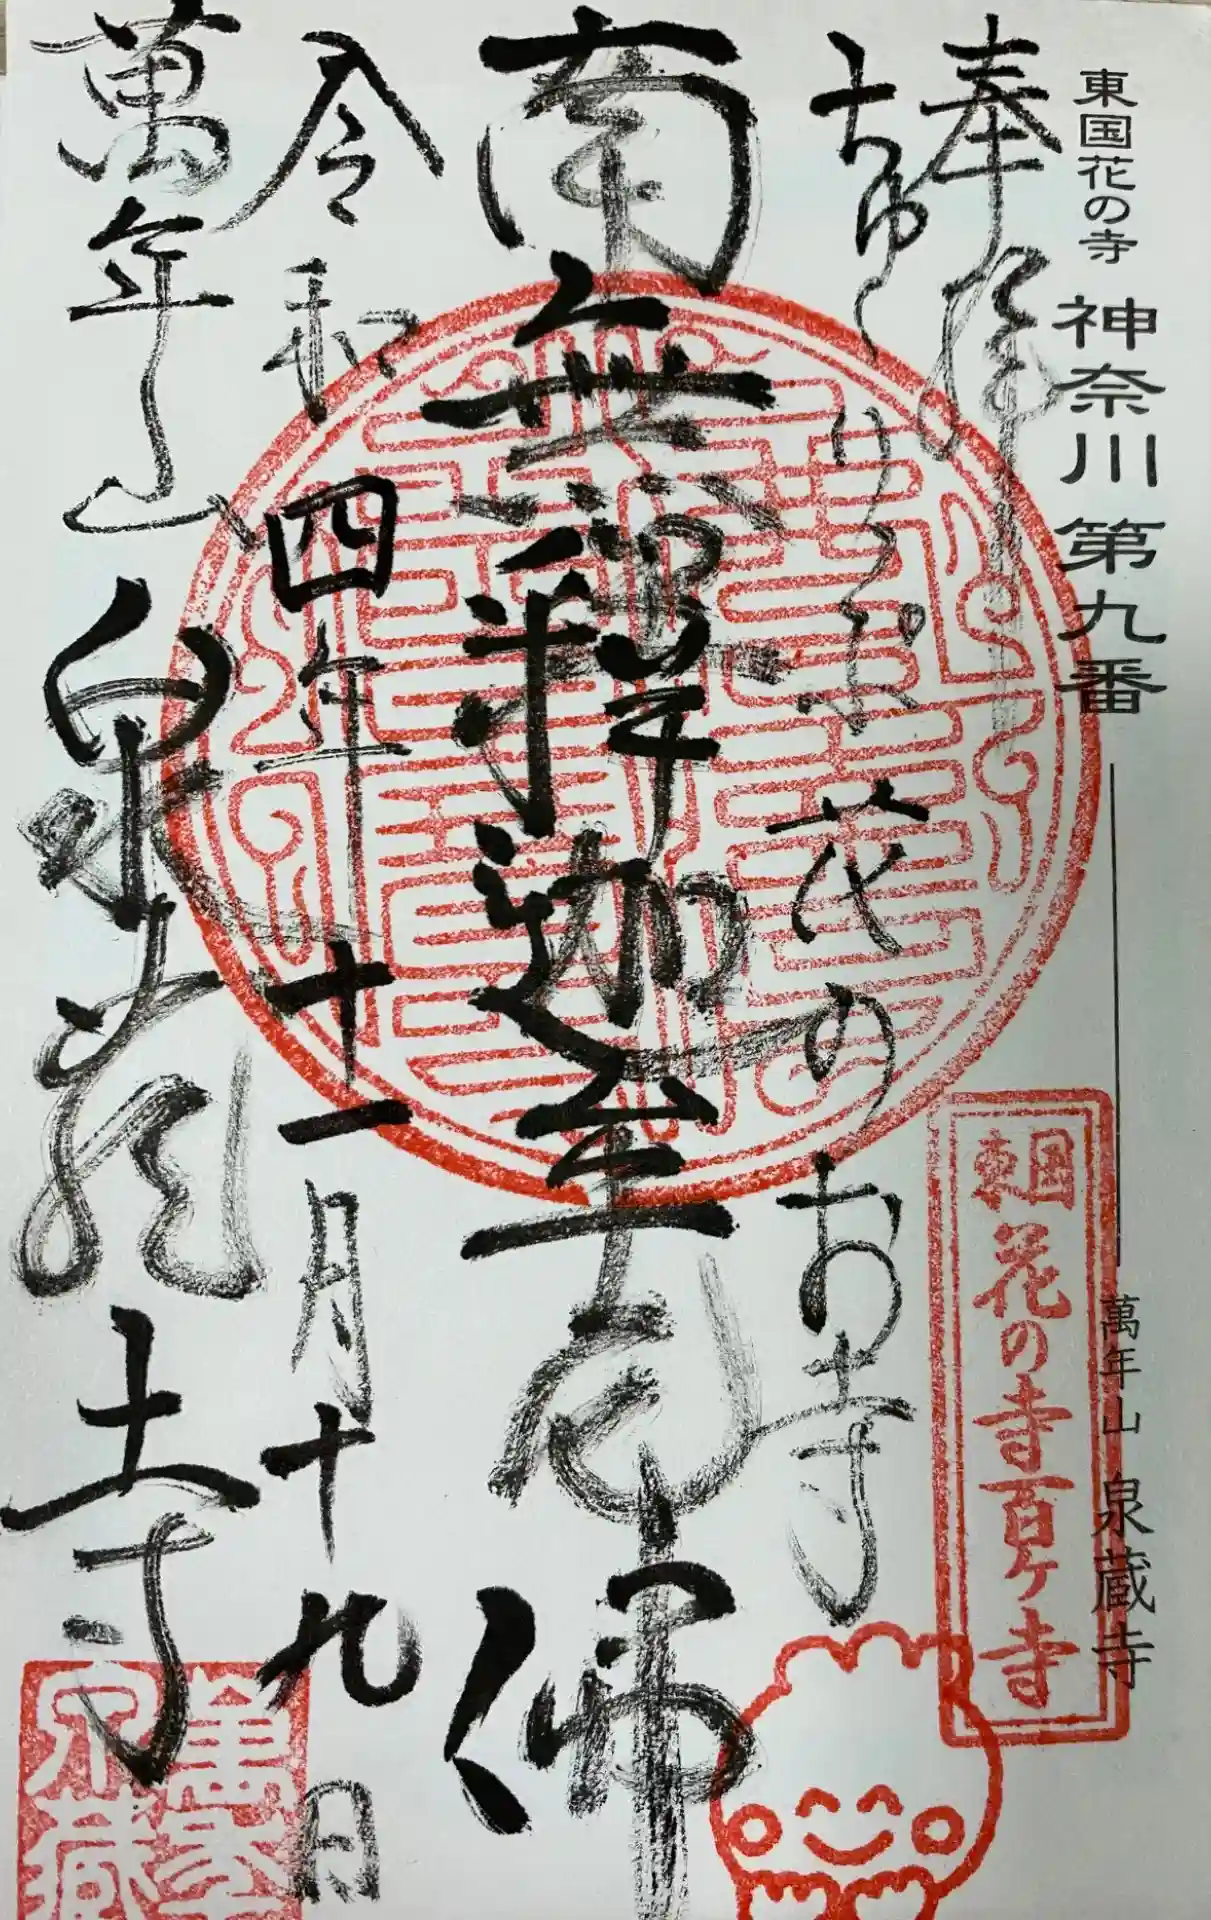 東国花の寺 神奈川第九番 萬年山 泉蔵寺
奉拝
花のお寺
南無釋迦牟尼佛
令和四年十一月十九日
萬年山 泉蔵寺
東国花の寺百ヶ寺